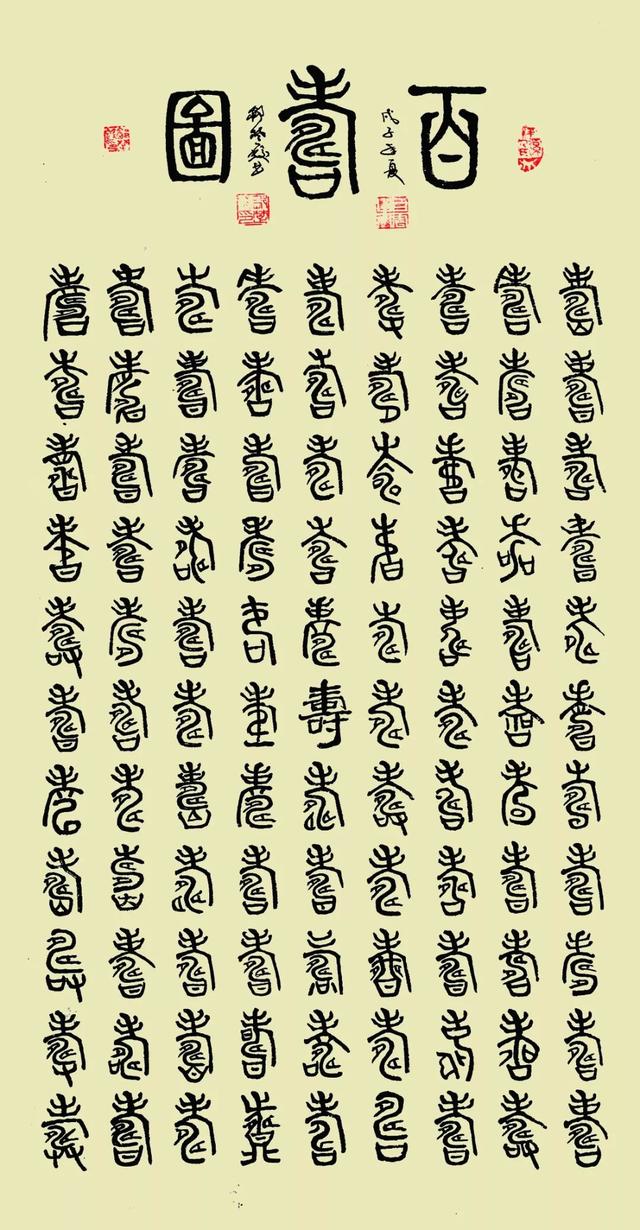 百壽圖
戊子年夏
壽壽壽壽壽壽壽壽壽壽壽
壽壽壽壽壽壽壽壽壽壽壽
壽壽壽壽壽壽壽壽壽壽壽
壽壽壽壽壽壽壽壽壽壽壽
壽壽壽壽壽壽壽壽壽壽壽
壽壽壽壽壽壽壽壽壽壽壽
壽壽壽壽壽壽壽壽壽壽壽
壽壽壽壽壽壽壽壽壽壽壽
壽壽壽壽壽壽壽壽壽壽壽